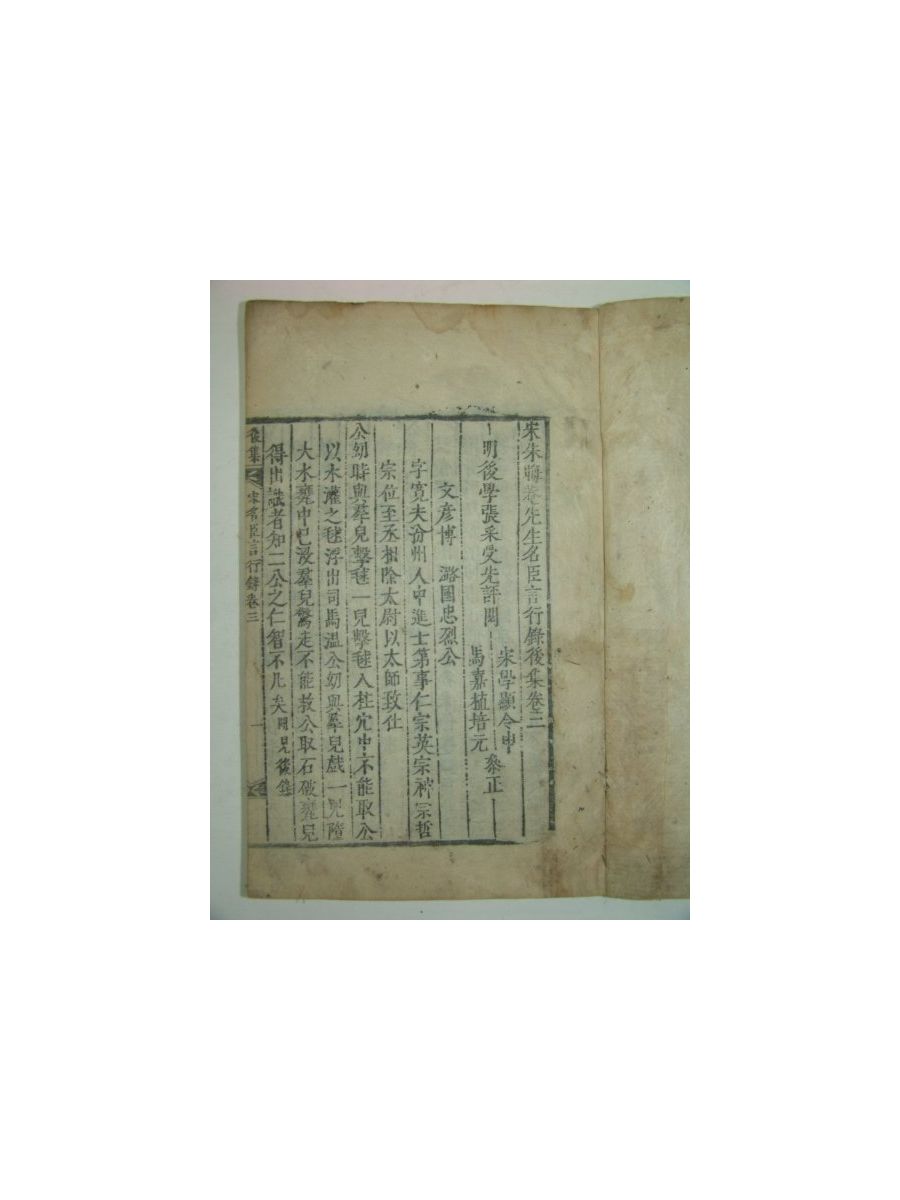 宋朱晦菴先生名臣言行錄後集卷三
明後學張采受先評閱
宋學顯令申
馬嘉植培元
參正
文彥博　潞國忠烈公
字寬夫汾州人中進士第事仁宗英宗神宗哲
宗位至丞相除太尉以太師致仕
公幼時與羣兒擊毬一兒擊毬入柱穴中不能取公
以水灌之毬浮出司馬溫公幼與羣兒戲一兒墮
大水甕中已沒羣兒驚走不能救公取石破甕兒
得出識者知二公之仁智不凡矣聞見後錄
後集　宋名臣言行錄卷三　一